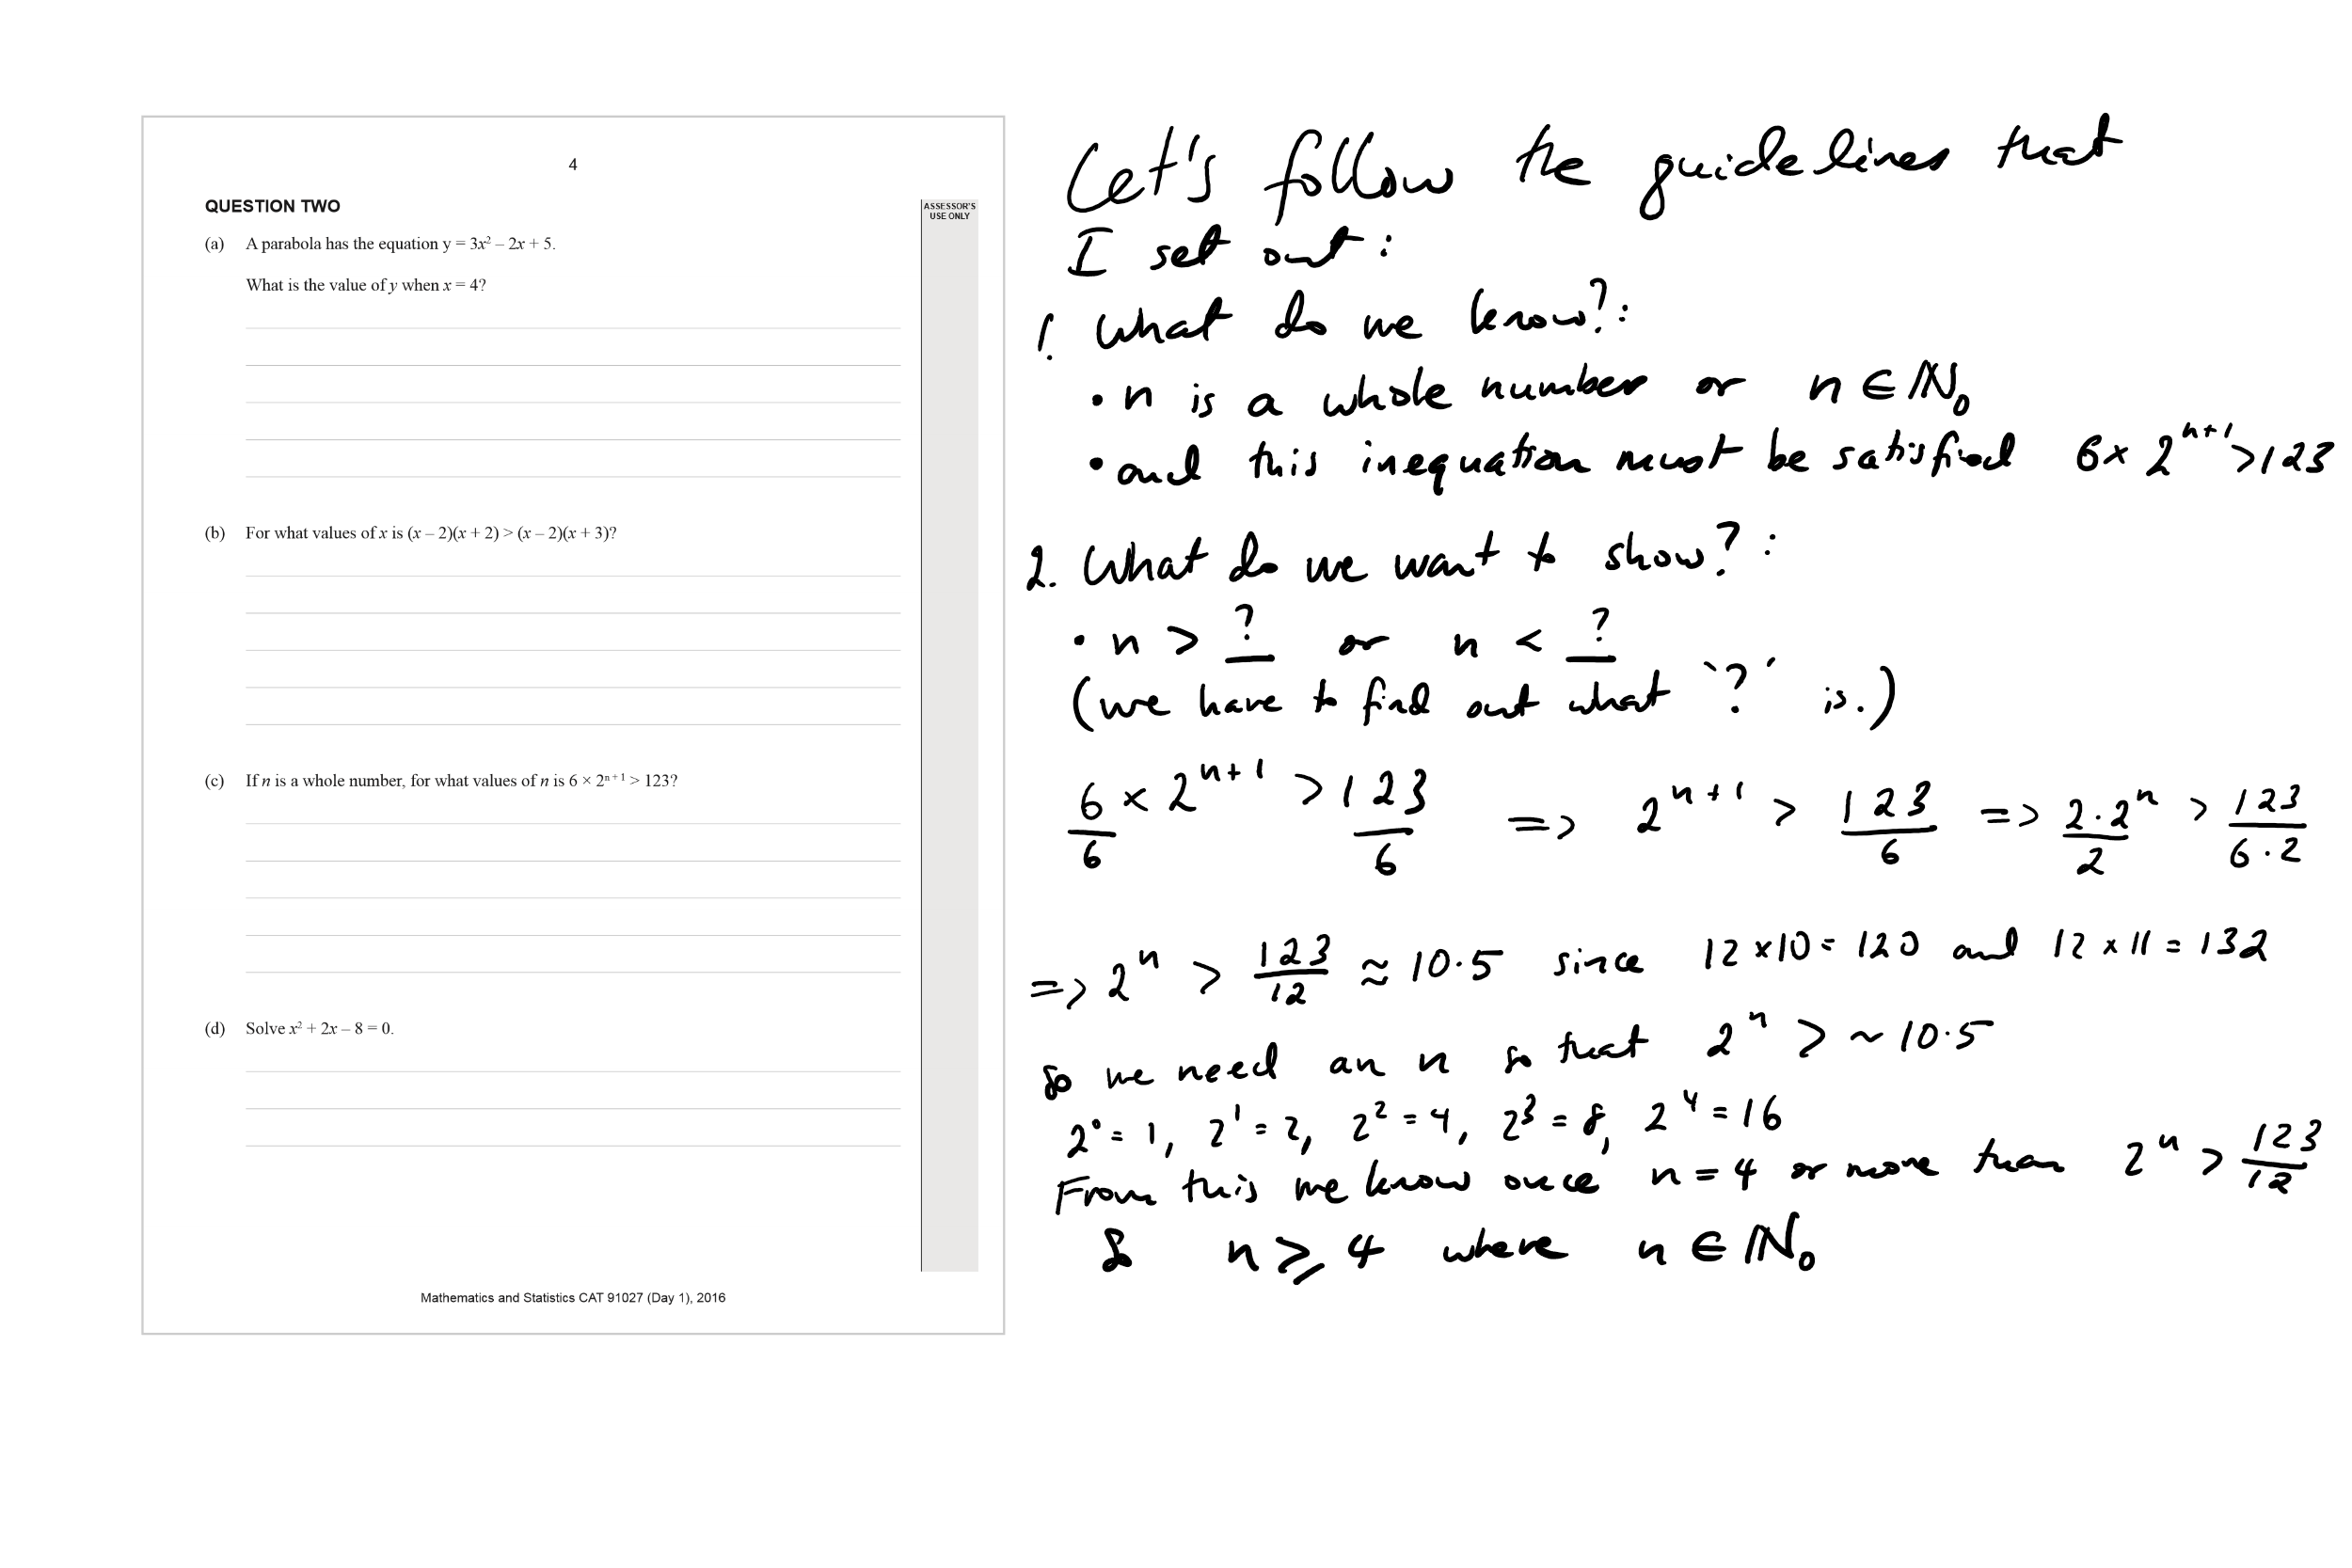 4
QUESTION TWO
ASSESSOR'S
USE ONLY
(a) A parabola has the equation y = 3x² – 2x + 5.
What is the value of y when x = 4?
(b) For what values of x is (x – 2)(x + 2) > (x – 2)(x + 3)?
(c) If n is a whole number, for what values of n is 6 × 2ⁿ⁺¹ > 123?
(d) Solve x² + 2x – 8 = 0.
Mathematics and Statistics CAT 91027 (Day 1), 2016
Let's follow the guidelines that
I set out:
1. What do we know?:
• n is a whole number or n ∈ ℕ₀
• and this inequation must be satisfied 6 × 2ⁿ⁺¹ > 123
2. What do we want to show?:
• n > ? or n < ?
(we have to find out what '?' is.)
6/6 × 2ⁿ⁺¹ > 123/6 => 2ⁿ⁺¹ > 123/6 => 2·2ⁿ/2 > 123/6·2
=> 2ⁿ > 123/12 ≈ 10·5 since 12 × 10 = 120 and 12 × 11 = 132
So we need an n so that 2ⁿ > ~ 10·5
2⁰ = 1, 2¹ = 2, 2² = 4, 2³ = 8, 2⁴ = 16
From this we know once n = 4 or more than 2ⁿ > 123/12
So n ⩾ 4 where n ∈ ℕ₀